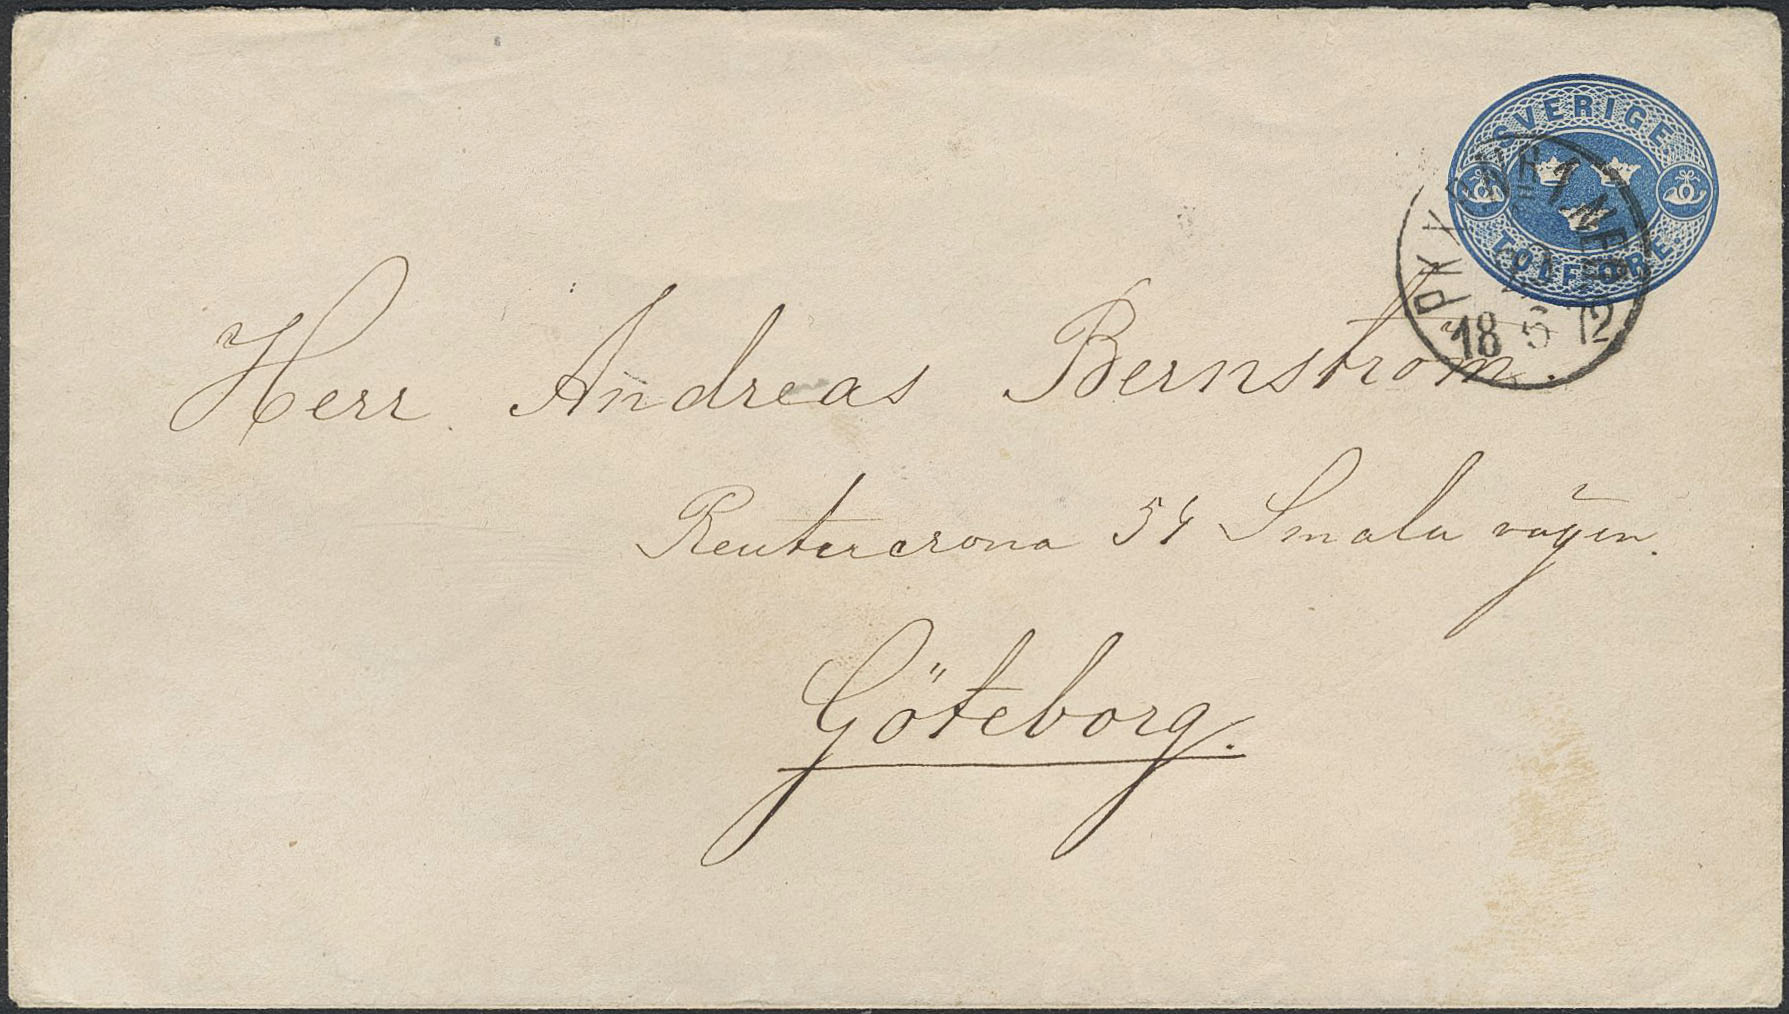 SVERIGE
TOLF ÖRE
PKXP Nr 1. NED
18 6 72
Herr Andreas Bernström.
Reutercrona 54 Smala vägen.
Göteborg.